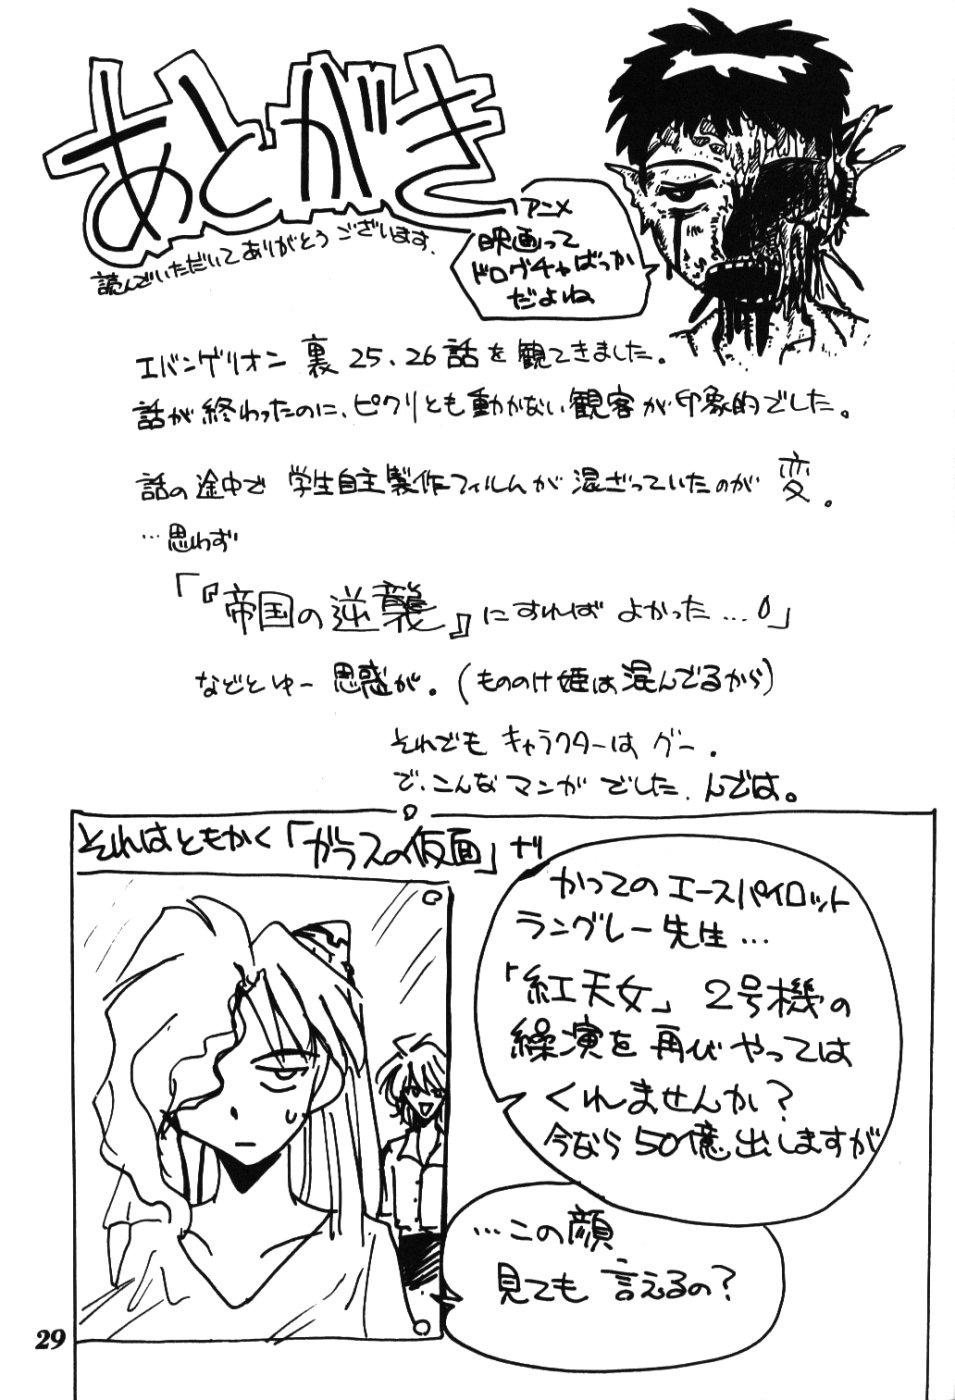 あとがき
読んでいただいてありがとうございます.
アニメ
映画って
ドログチャばっか
だよね
エバンゲリオン 裏 25、26話を観てきました。
話が終わったのに、ピクリとも動かない観客が印象的でした。
話の途中で 学生自主製作フィルムが混ざっていたのが 変。
…思わず
「『帝国の逆襲』にすればよかった…」
などとゆー 思惑が。(もののけ姫は混んでるから)
それでも キャラクターは グー.
で、こんなマンガでした. んでは。
それはともかく「ガラスの仮面」ナリ
かつてのエースパイロット
ラングレー先生…
「紅天女」2号機の
操演を再びやっては
くれませんか?
今なら50億出しますが
…この顔
見ても言えるの?
29